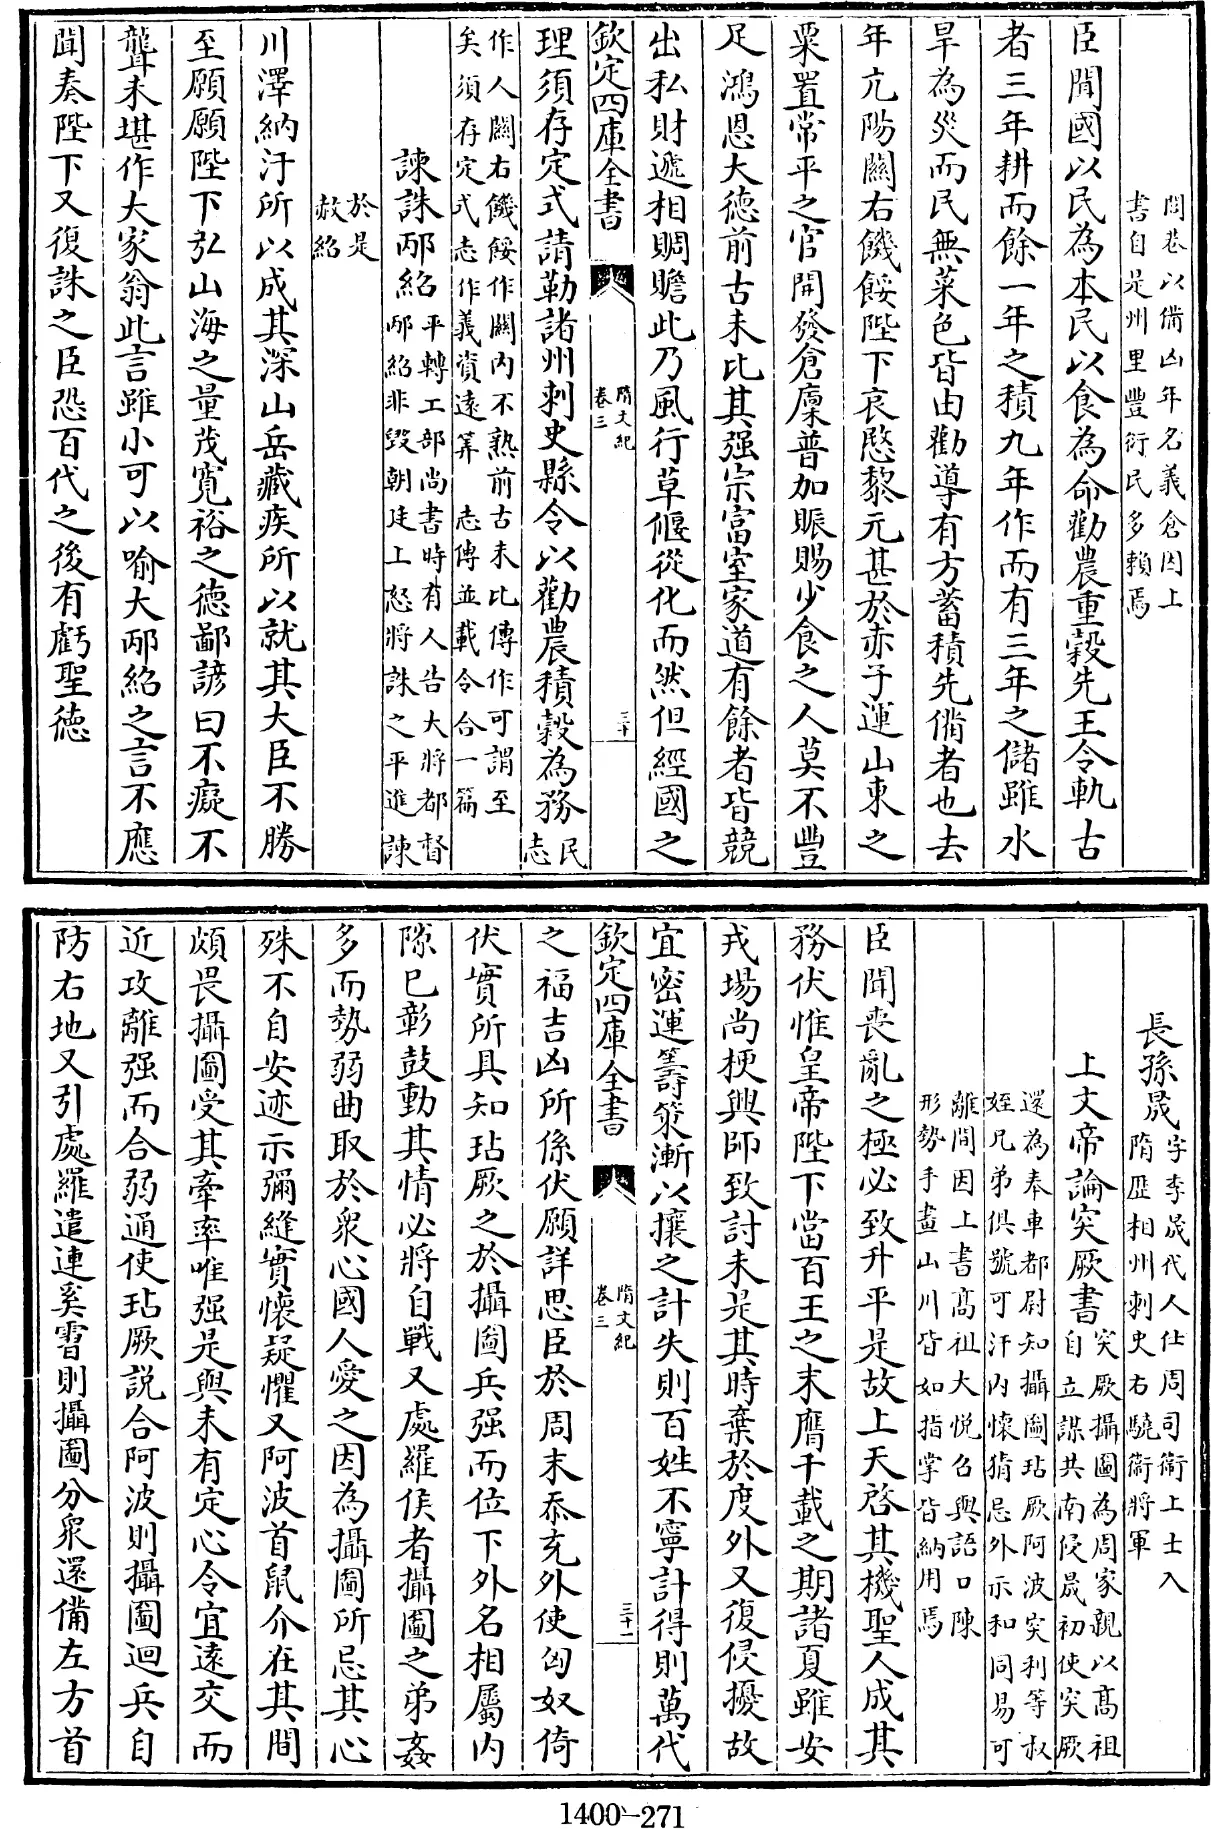 閭巷以備凶年名義倉因上
書自是州里豐衍民多賴焉
臣聞國以民為本民以食為命勸農重穀先王令軌古
者三年耕而餘一年之積九年作而有三年之儲雖水
旱為災而民無菜色皆由勸導有方蓄積先備者也去
年亢陽關右饑餒陛下哀愍黎元甚於赤子運山東之
粟置常平之官開發倉廩普加賑賜少食之人莫不豐
足鴻恩大德前古未比其强宗富室家道有餘者皆競
出私財遞相賙贍此乃風行草偃從化而然但經國之
欽定四庫全書
隋文紀
卷三
三十
理須存定式請勒諸州刺史縣令以勸農積穀為務民
志
作人關右饑餒作關內不熟前古未比傳作可謂至
矣須存定式志作義資遠筭 志傳並載令合一篇
諫誅邴紹平轉工部尚書時有人告大將都督
邴紹非毀朝廷上怒將誅之平進諫
於是
赦紹
川澤納汙所以成其深山岳藏疾所以就其大臣不勝
至願願陛下弘山海之量茂寬裕之德鄙諺曰不癡不
聾未堪作大家翁此言雖小可以喻大邴紹之言不應
聞奏陛下又復誅之臣恐百代之後有虧聖德
長孫晟字季晟代人仕周司衞上士入
隋歴相州刺史右驍衞將軍
上文帝論突厥書突厥攝圖為周家親以髙祖
自立謀共南侵晟初使突厥
還為奉車都尉知攝圖玷厥阿波突利等叔
姪兄弟俱號可汗內懷猜忌外示和同易可
離間因上書髙祖大悅召與語口陳
形勢手畫山川皆如指掌皆納用焉
臣聞喪亂之極必致升平是故上天啓其機聖人成其
務伏惟皇帝陛下當百王之末膺千載之期諸夏雖安
戎場尚梗興師致討未是其時棄於度外又復侵擾故
宜密運籌策漸以攘之計失則百姓不寧計得則萬代
欽定四庫全書
隋文紀
卷三
三十一
之福吉凶所係伏願詳思臣於周末忝充外使匈奴倚
伏實所具知玷厥之於攝圖兵强而位下外名相屬內
隙已彰鼓動其情必將自戰又處羅侯者攝圖之弟姦
多而勢弱曲取於衆心國人愛之因為攝圖所忌其心
殊不自安迹示彌縫實懷疑懼又阿波首鼠介在其間
頗畏攝圖受其牽率唯强是與未有定心令宜遠交而
近攻離强而合弱通使玷厥説合阿波則攝圖迴兵自
防右地又引處羅遣連奚霫則攝圖分衆還備左方首
1400-271